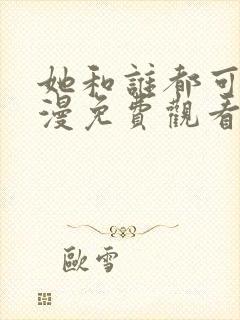 她和誰都可
漫免費觀看
歐雪